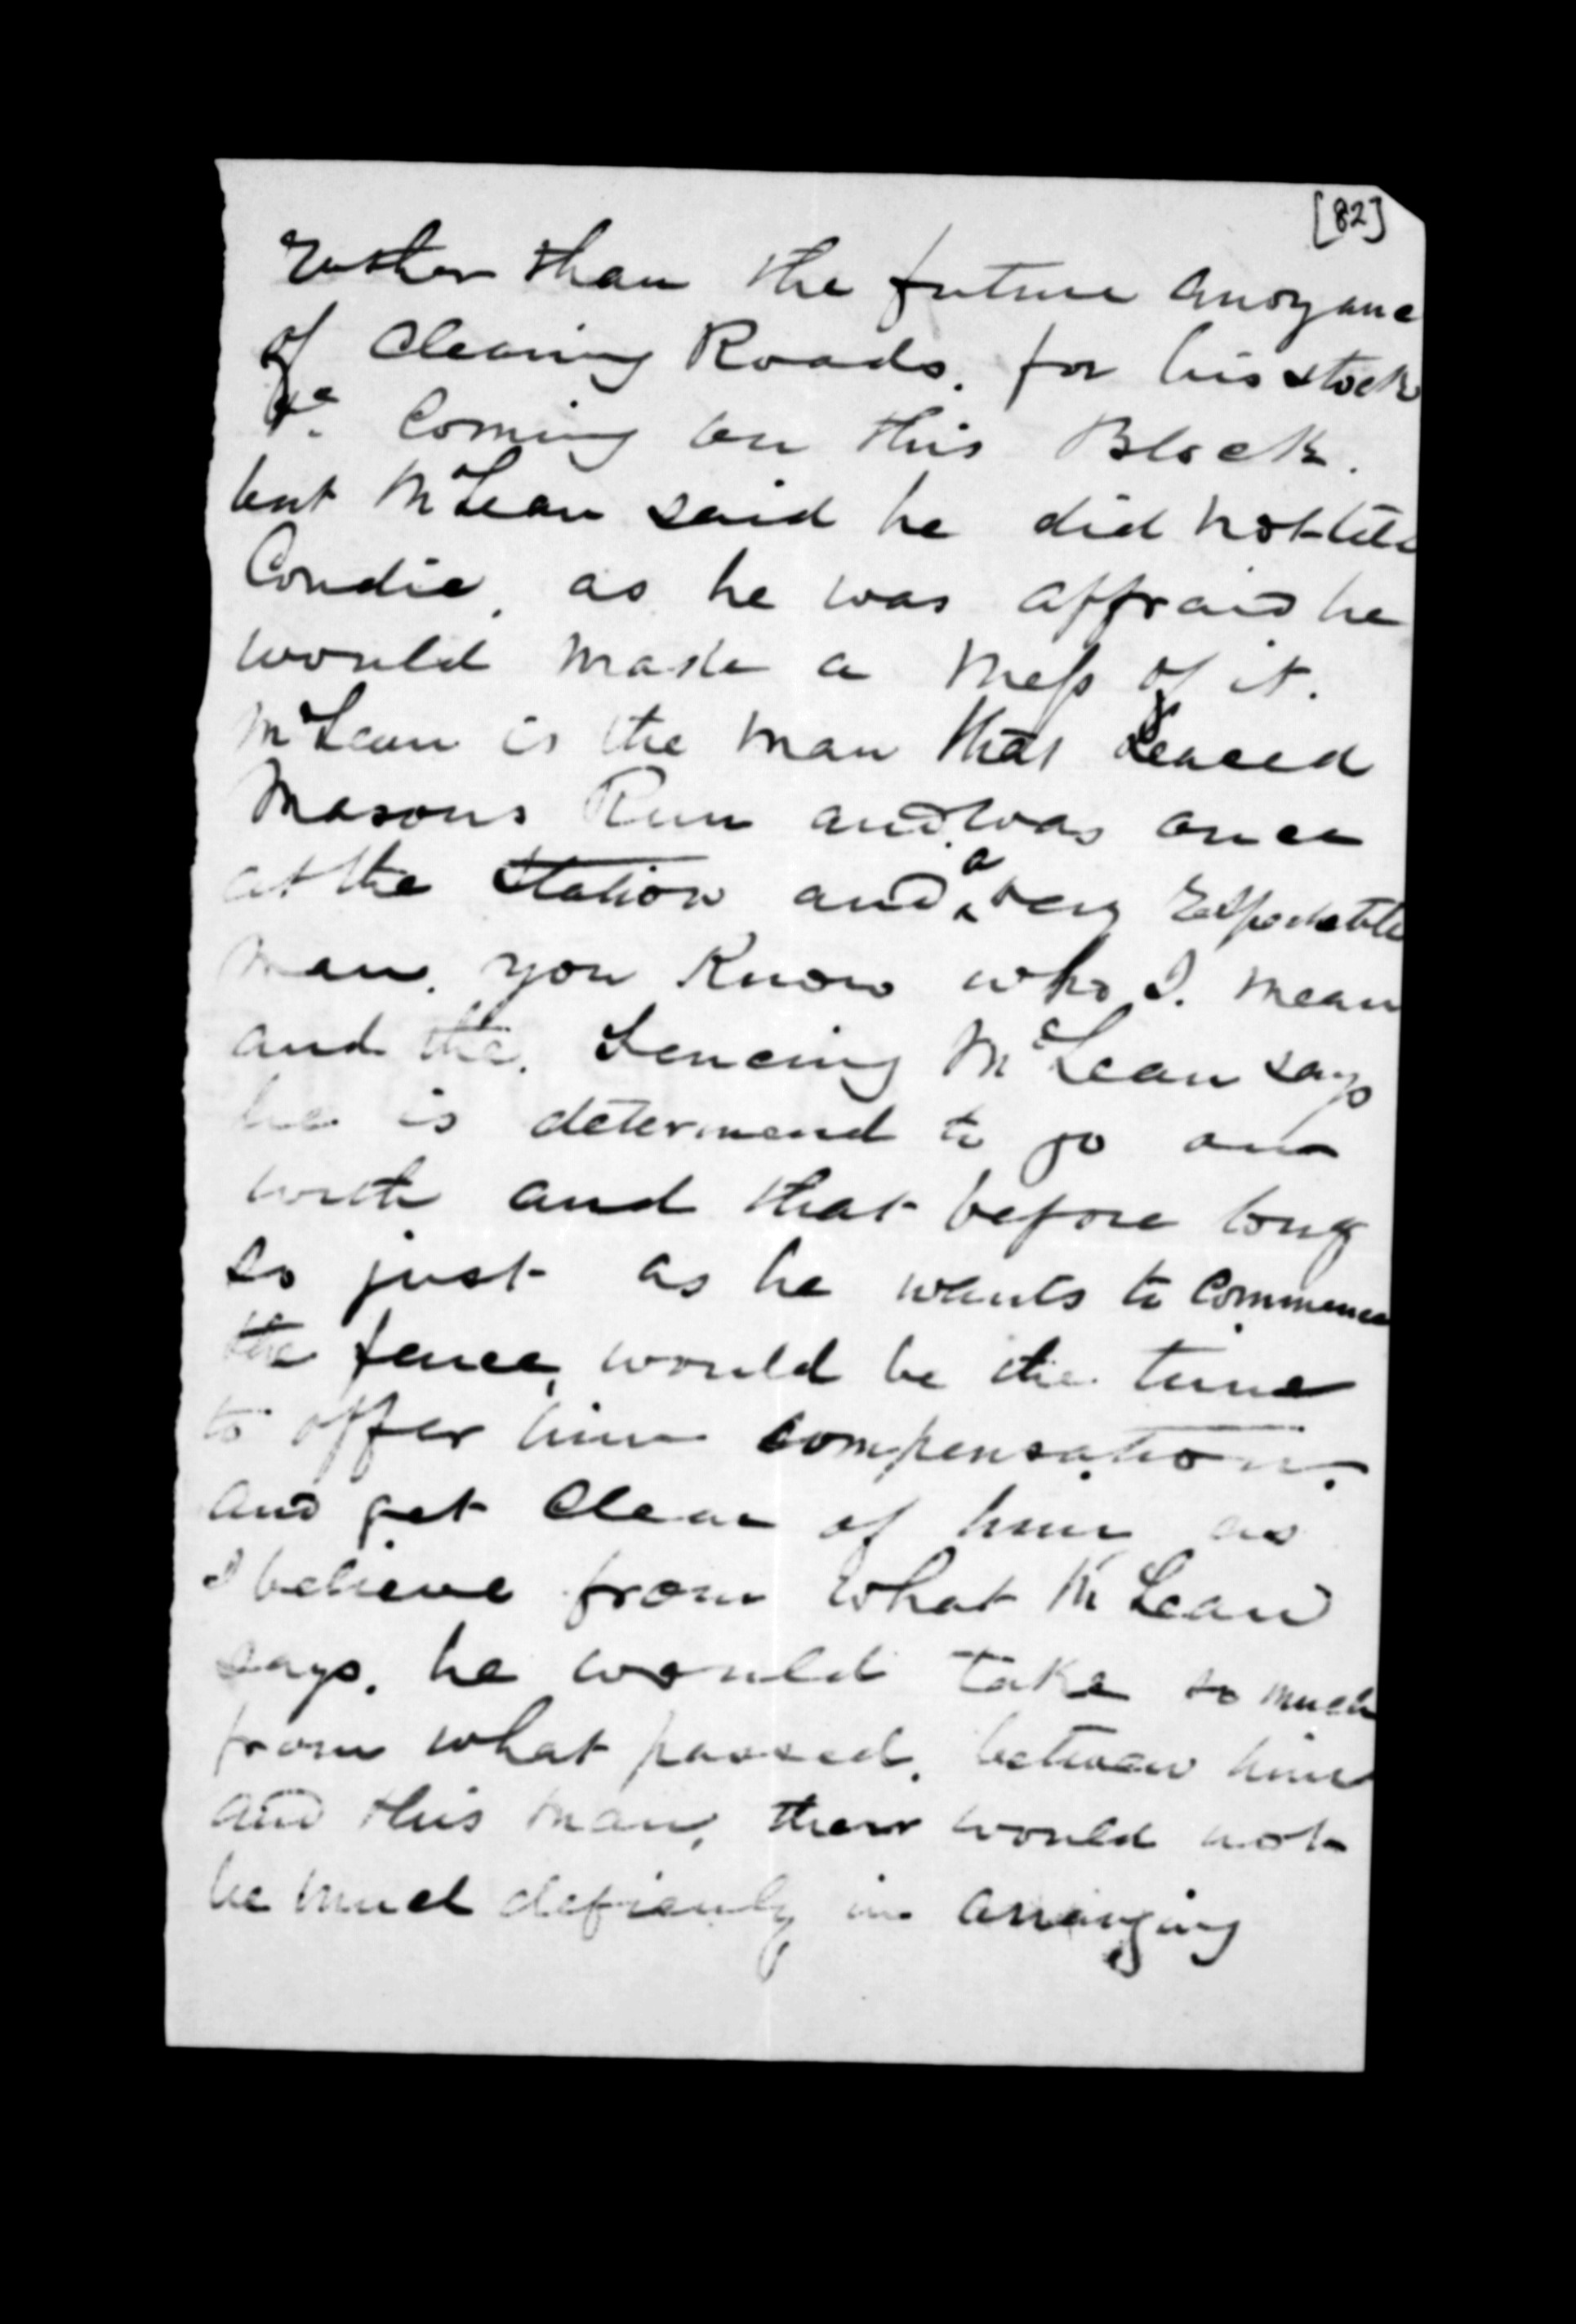 [82]
Rather than the future anoyance
of Clearing Roads. for his stock
&c. Coming on this Block.
but McLean said he did not tell
Condie, as he was affraid he
would make a mess of it.
McLean is the man that Leaced
Masons Run and was once
at the Station and a very Respectable
man. you Know who I. mean
and the. Fencing McLean says
he is determend to go on
with and that before long
so just as he wants to Commence
the fence, would be the time
to offer him compensation.
and get Clear of him as
I believe from what McLean
says. he would take so much
from what passed. between him
and this man, ther would not
be much deficulty in arranging